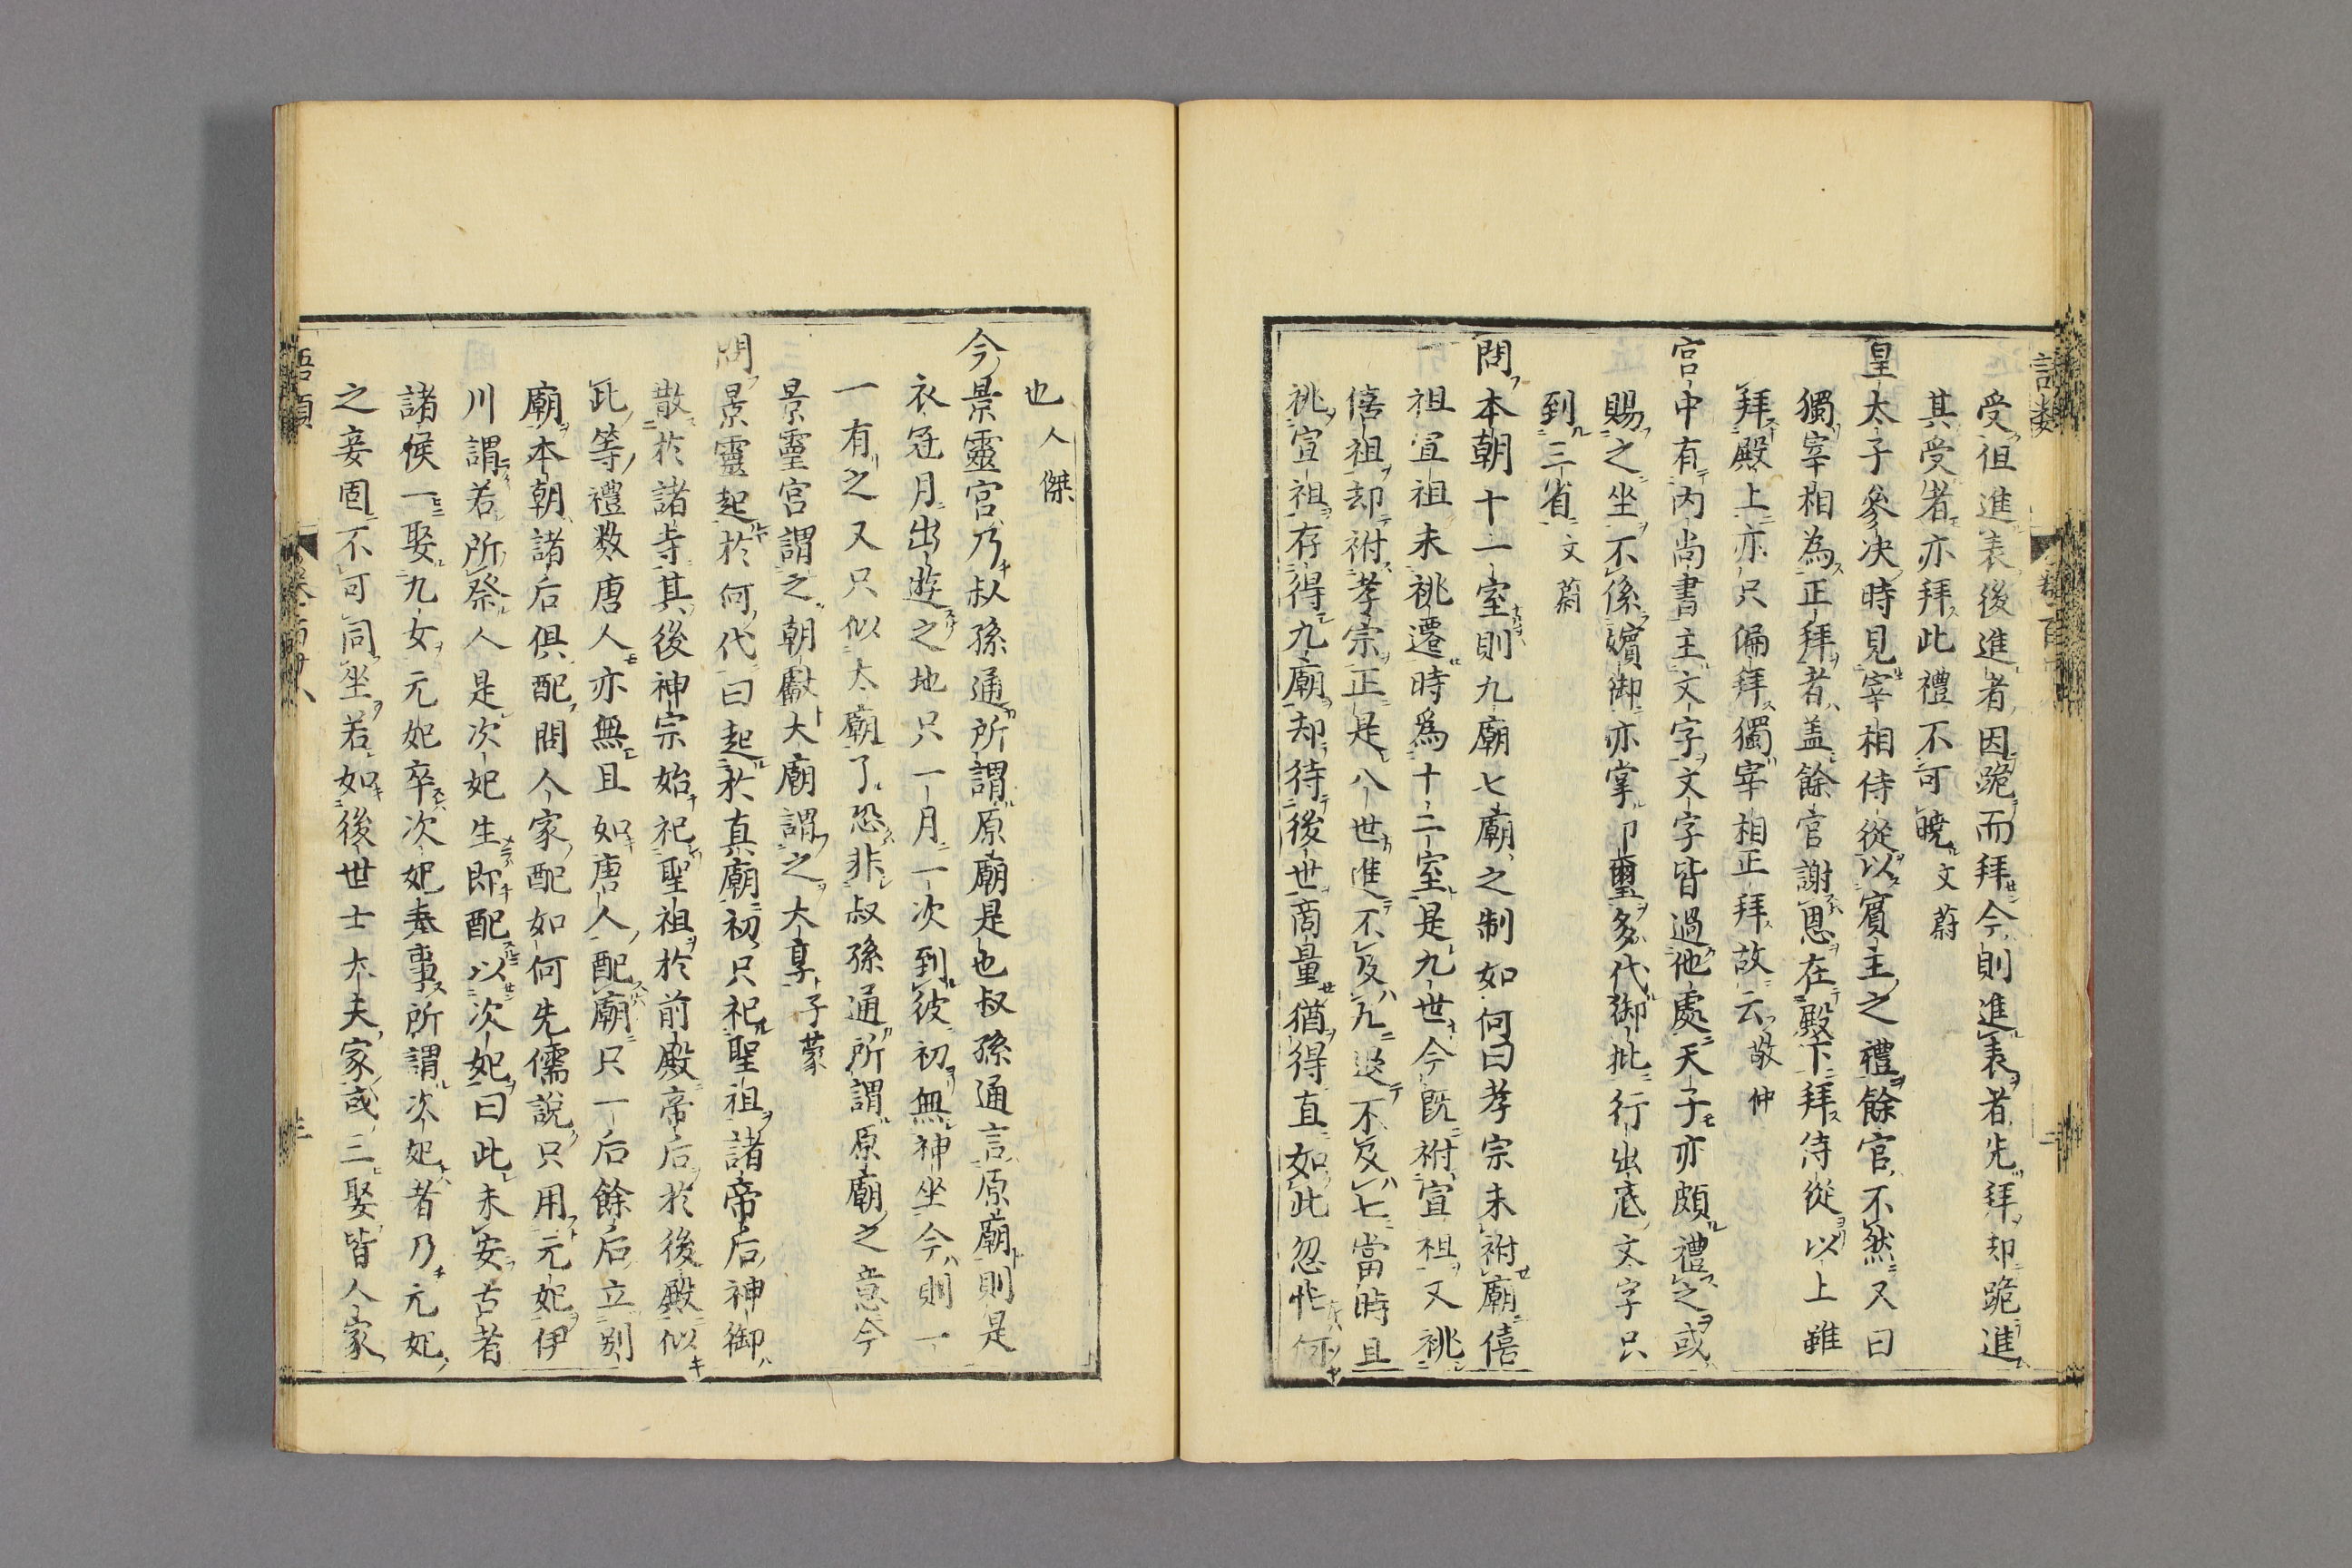 受徂進表後進者因跪而拜今則進表者先拜却跪進
其受者亦拜此禮不可曉文蔚
皇太子參决時見宰相侍從以賓主之禮餘官不然又曰
獨宰相為正拜者盖餘官謝恩在殿下拜侍從以上雖
拜殿上亦只偏拜獨宰相正拜故云敬仲
宮中有內尚書主文字文字皆過他處天子亦頗禮之或
賜之坐不係嬪御亦掌印璽多代御批行出底文字只
到三省文蔚
問本朝十一室則九廟七廟之制如何曰孝宗未祔廟僖
祖宣祖未祧遷時爲十二室是九世今既祔宣祖又祧
僖祖却祔孝宗正是八世進不及九退不及七當時且
祧宣祖存得九廟却待後世商量猶得直如此忽忙何
也人傑
今景靈宮乃叔孫通所謂原廟是也叔孫通言原廟則是
衣冠月出遊之地只一月一次到彼初無神坐今則一
一有之又只似太廟了恐非叔孫通所謂原廟之意今
景靈宮謂之朝獻大廟謂之大享子蒙
問景靈起於何代曰起於真廟初只祀聖祖諸帝后神御
散於諸寺其後神宗始祀聖祖於前殿帝后於後殿似
此等禮数唐人亦無且如唐人配廟只一后餘后立别
廟本朝諸后俱配問人家配如何先儒說只用元妃伊
川謂若所祭人是次妃生即配以次妃曰此未安古者
諸侯一娶九女元妃卒次妃奉事所謂次妃者乃元妃
之妾固不可同坐若如後世士大夫家或三娶皆人家